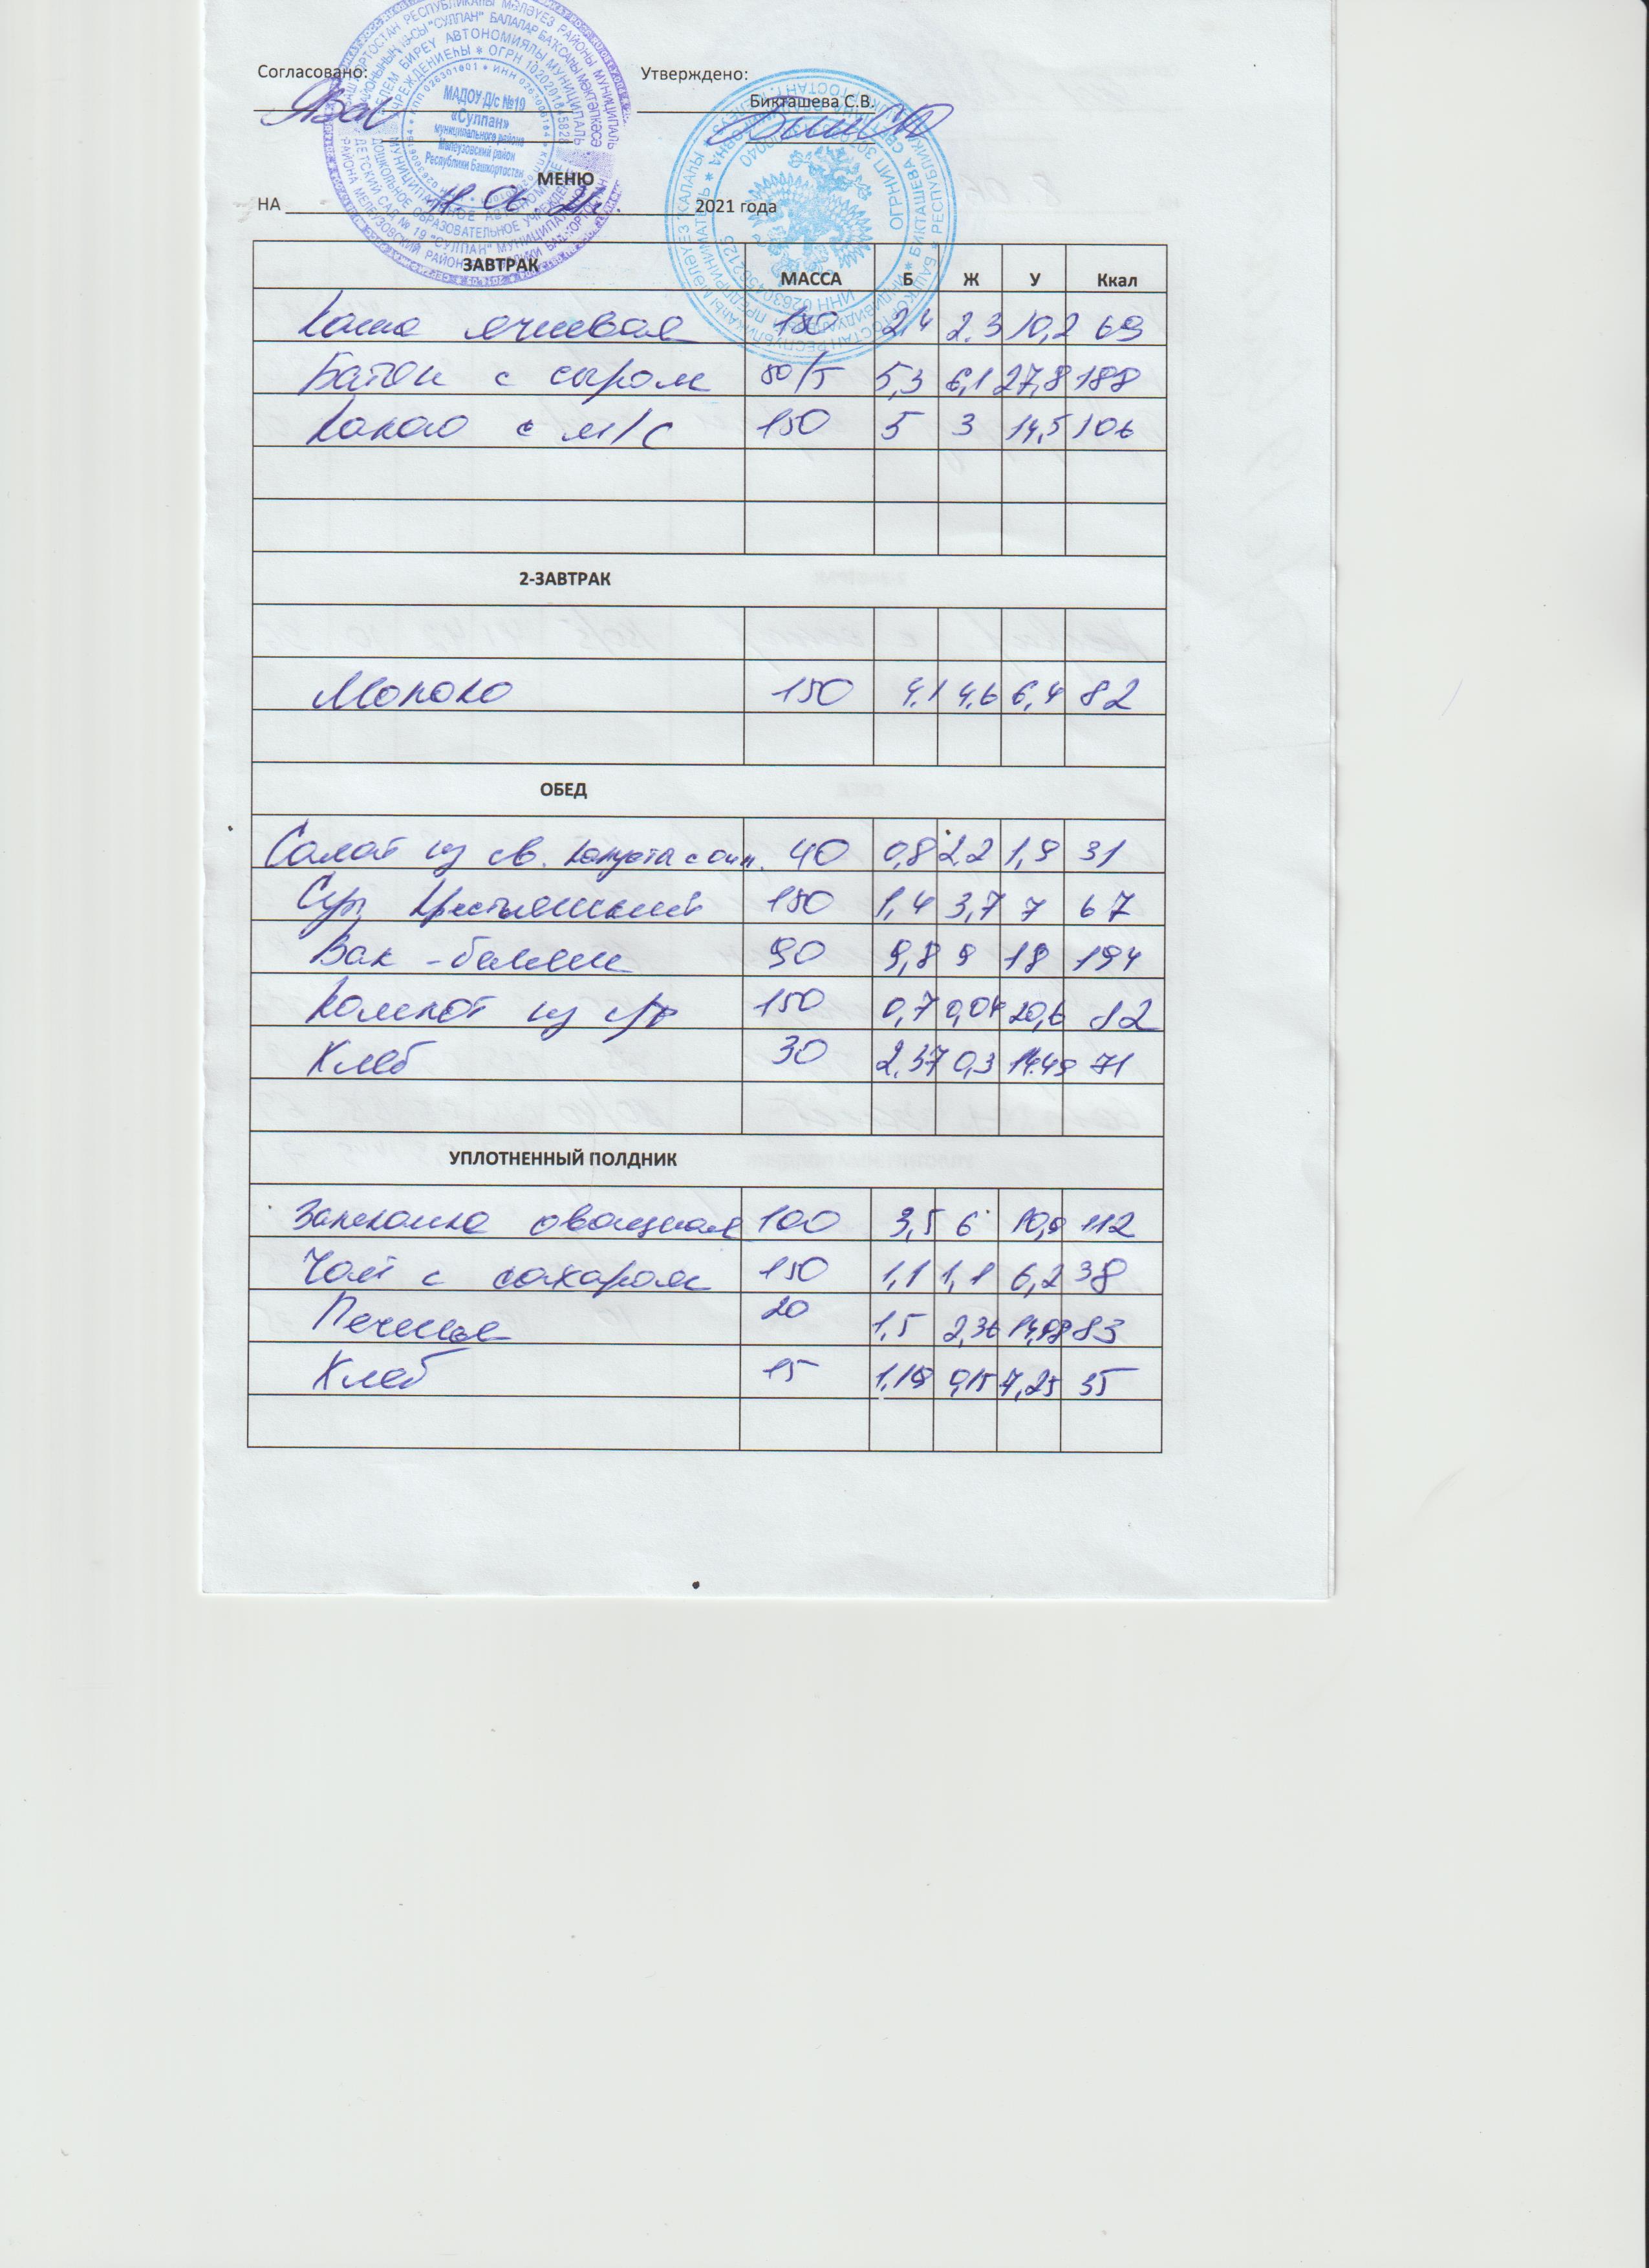 Согласовано: Утверждено:
Бикташева С.В.
МАДОУ Д/с №19
«Сулпан»
муниципального района
Мелеузовский район
Республики Башкортостан
МЕНЮ
НА 11.06.21г. 2021 года
ЗАВТРАК МАССА Б Ж У Ккал
Каша ячневая 150 2,4 2.3 10,2 69
Батон с сыром 50/5 5,3 6,1 27,8 188
Какао с м/с 150 5 3 14,5 106
2-ЗАВТРАК
Молоко 150 4.1 4,6 6,4 82
ОБЕД
Салат из св. капусты с 40 0,8 2,2 1,9 31
Суп Крестьянский 150 1,4 3,7 7 67
Вак-беляш 90 9,8 9 18 194
Компот из с/ф 150 0,7 0,04 20,6 82
Хлеб 30 2.37 0,3 14.49 71
УПЛОТНЕННЫЙ ПОЛДНИК
Запеканка овощная 100 3,5 6 10,9 112
Чай с сахаром 150 1,1 1,1 6,2 38
Печенье 20 1,5 2,36 14,98 83
Хлеб 15 1,19 0,15 7,25 35